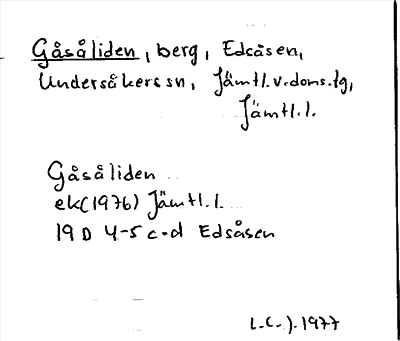 Gåsåliden, berg, Edsåsen,
Undersåkers sn, Jämtl.v.doms.lg,
Jämtl.l.
Gåsåliden
ek(1976) Jämtl.l.
19D 4-5 c-d Edsåsen
L.C.J. 1977